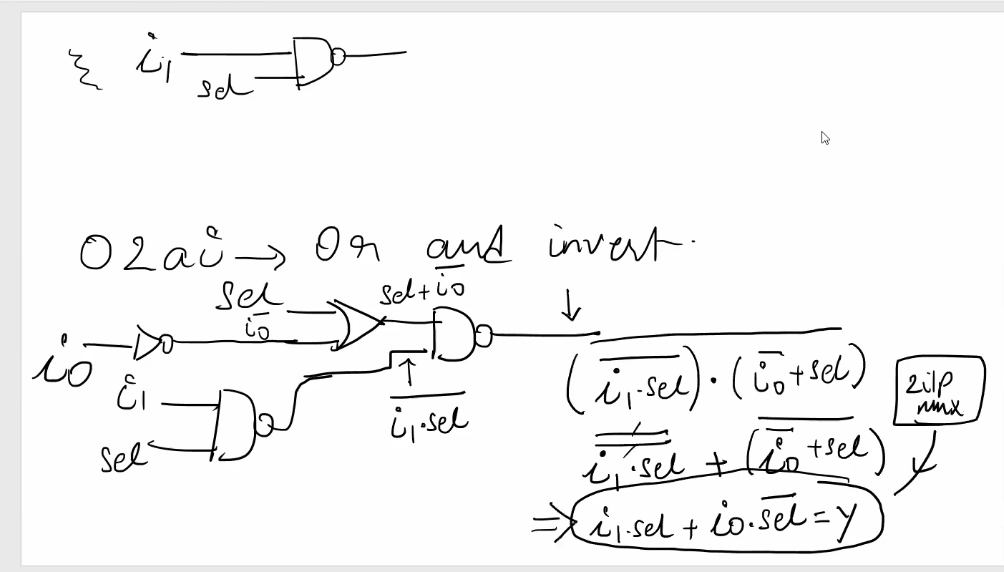 i₁
sel
o2ai → Or and invert.
sel
i̅₀
sel + i̅₀
i₀
i₁
sel
i̅₁̅.̅s̅e̅l̅
(i̅₁̅.̅s̅e̅l̅) . (i̅₀ + sel)
i₁.sel + (i̅₀ + sel)
⇒ i₁.sel + i₀.s̅e̅l̅ = y
2i/p
mux